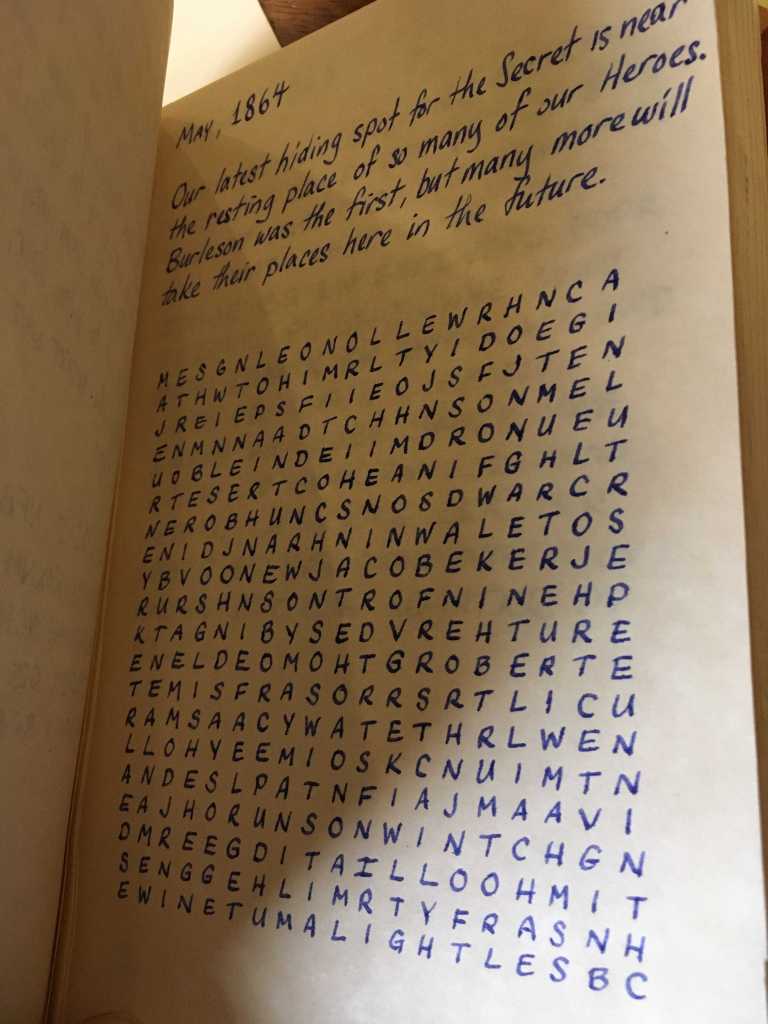 May, 1864
Our latest hiding spot for the Secret is near
the resting place of so many of our Heroes.
Burleson was the first, but many more will
take their places here in the future.
M E S G N L E O N O L L E W R H N C A
A T H W T O H I M R L T Y I D O E G I
J R E I E P S F I I E O J S F J T E N
E N M N N A A D T C H H N S O N M E L
U O B L E I N D E I I M D R O N U E U
R T E S E R T C O H E A N I F G H L T
N E R O B H U N C S N O S D W A R C R
E N I D J N A R H N I N W A L E T O S
Y B V O O N E W J A C O B E K E R J E
R U R S H N S O N T R O F N I N E H P
K T A G N I B Y S E D V R E H T U R E
E N E L D E O M O H T G R O B E R T E
T E M I S F R A S O R R S R T L I C U
R A M S A A C Y W A T E T H R L W E N
L L O H Y E E M I O S K C N U I M T N
A N D E S L P A T N F I A J M A A V I
E A J H O R U N S O N W I N T C H G N
D M R E E G D I T A I L L O O H M I T
S E N G G E H L I M R T Y F R A S N H
E W I N E T U M A L I G H T L E S B C